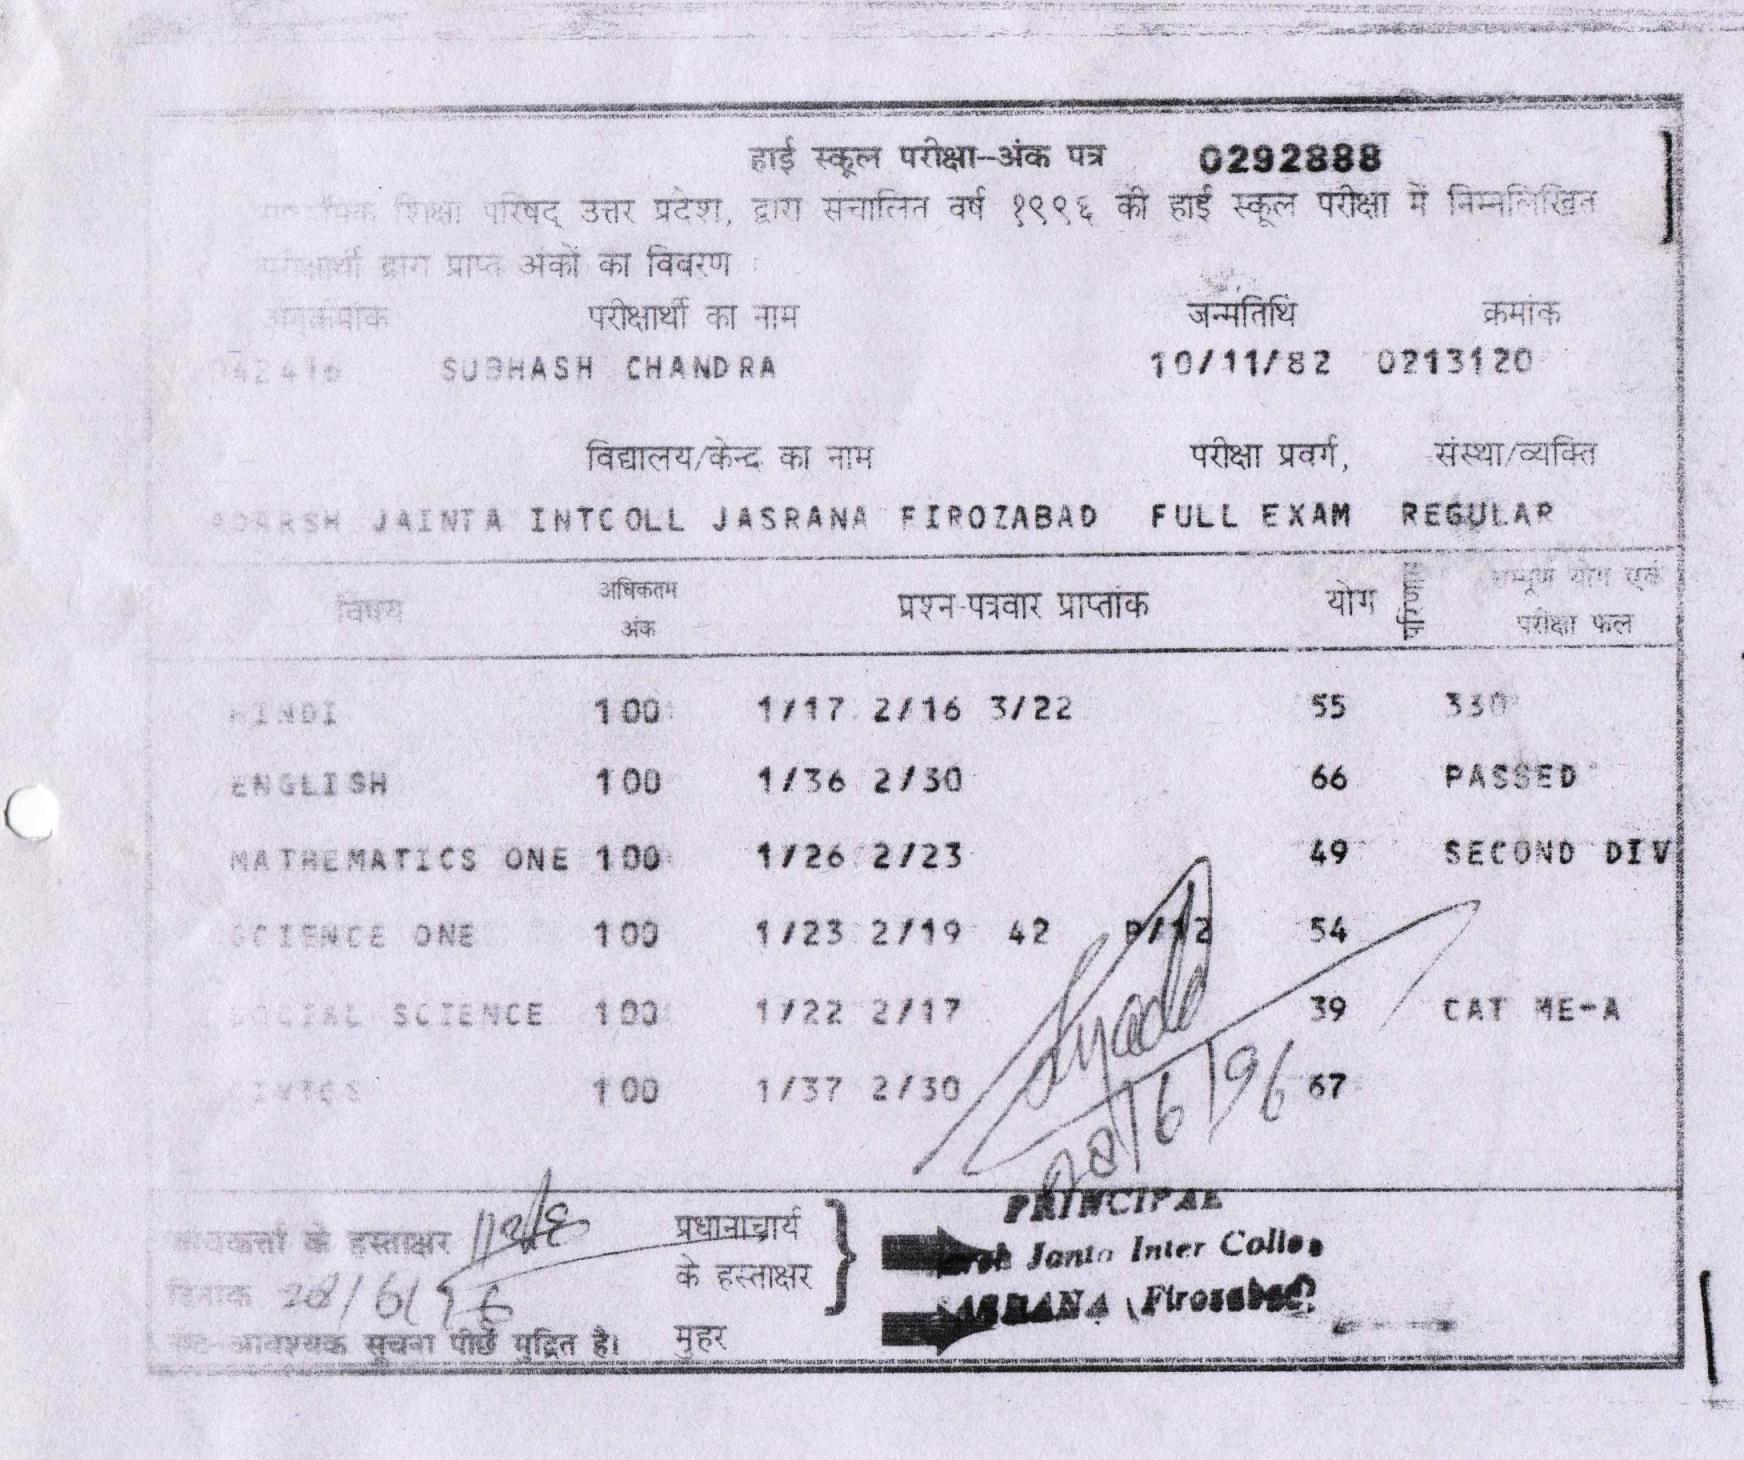 हाई स्कूल परीक्षा–अंक पत्र 0292888
शिक्षा परिषद् उत्तर प्रदेश, द्वारा संचालित वर्ष १९९६ की हाई स्कूल परीक्षा में निम्नलिखित
परीक्षार्थी द्वारा प्राप्त अंकों का विवरण
अनुक्रमांक परीक्षार्थी का नाम जन्मतिथि क्रमांक
SUBHASH CHANDRA 10/11/82 0213120
विद्यालय/केन्द्र का नाम परीक्षा प्रवर्ग, संस्था/व्यक्ति
ADARSH JAINTA INTCOLL JASRANA FIROZABAD FULL EXAM REGULAR
विषय अधिकतम अंक प्रश्न-पत्रवार प्राप्तांक योग परिणाम सम्पूर्ण योग एवं परीक्षा फल
HINDI 100 1/17 2/16 3/22 55 330
ENGLISH 100 1/36 2/30 66 PASSED
MATHEMATICS ONE 100 1/26 2/23 49 SECOND DIV
SCIENCE ONE 100 1/23 2/19 42 P/12 54
SOCIAL SCIENCE 100 1/22 2/17 39 CAT ME-A
CIVICS 100 1/37 2/30 67
28/6/96
PRINCIPAL
के हस्ताक्षर प्रधानाचार्य Janta Inter Colle
दिनांक 28/6/96 के हस्ताक्षर JASRANA (Firozabad)
आवश्यक सूचना पीछे मुद्रित है। मुहर